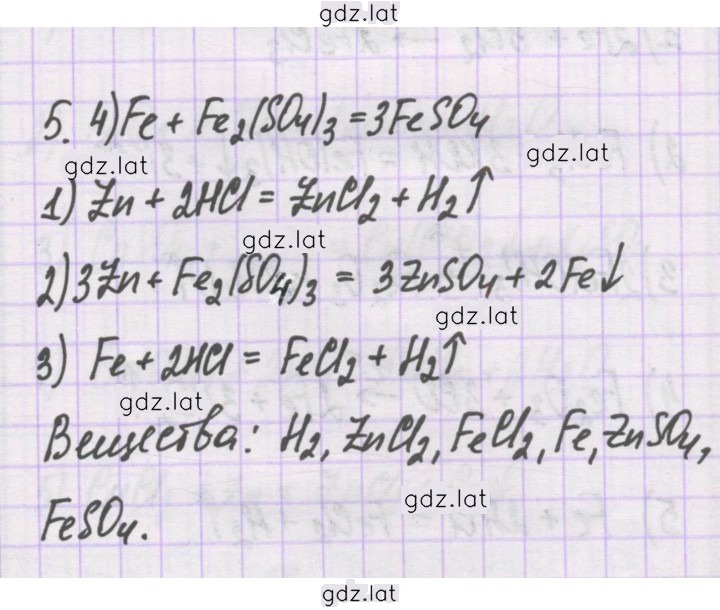 gdz.lat
5. 4) Fe + Fe₂(SO₄)₃ = 3FeSO₄
gdz.lat
gdz.lat
1) Zn + 2HCl = ZnCl₂ + H₂↑
gdz.lat
2) 3Zn + Fe₂(SO₄)₃ = 3ZnSO₄ + 2Fe↓
gdz.lat
3) Fe + 2HCl = FeCl₂ + H₂↑
gdz.lat
Вещества: H₂, ZnCl₂, FeCl₂, Fe, ZnSO₄,
gdz.lat
FeSO₄.
gdz.lat